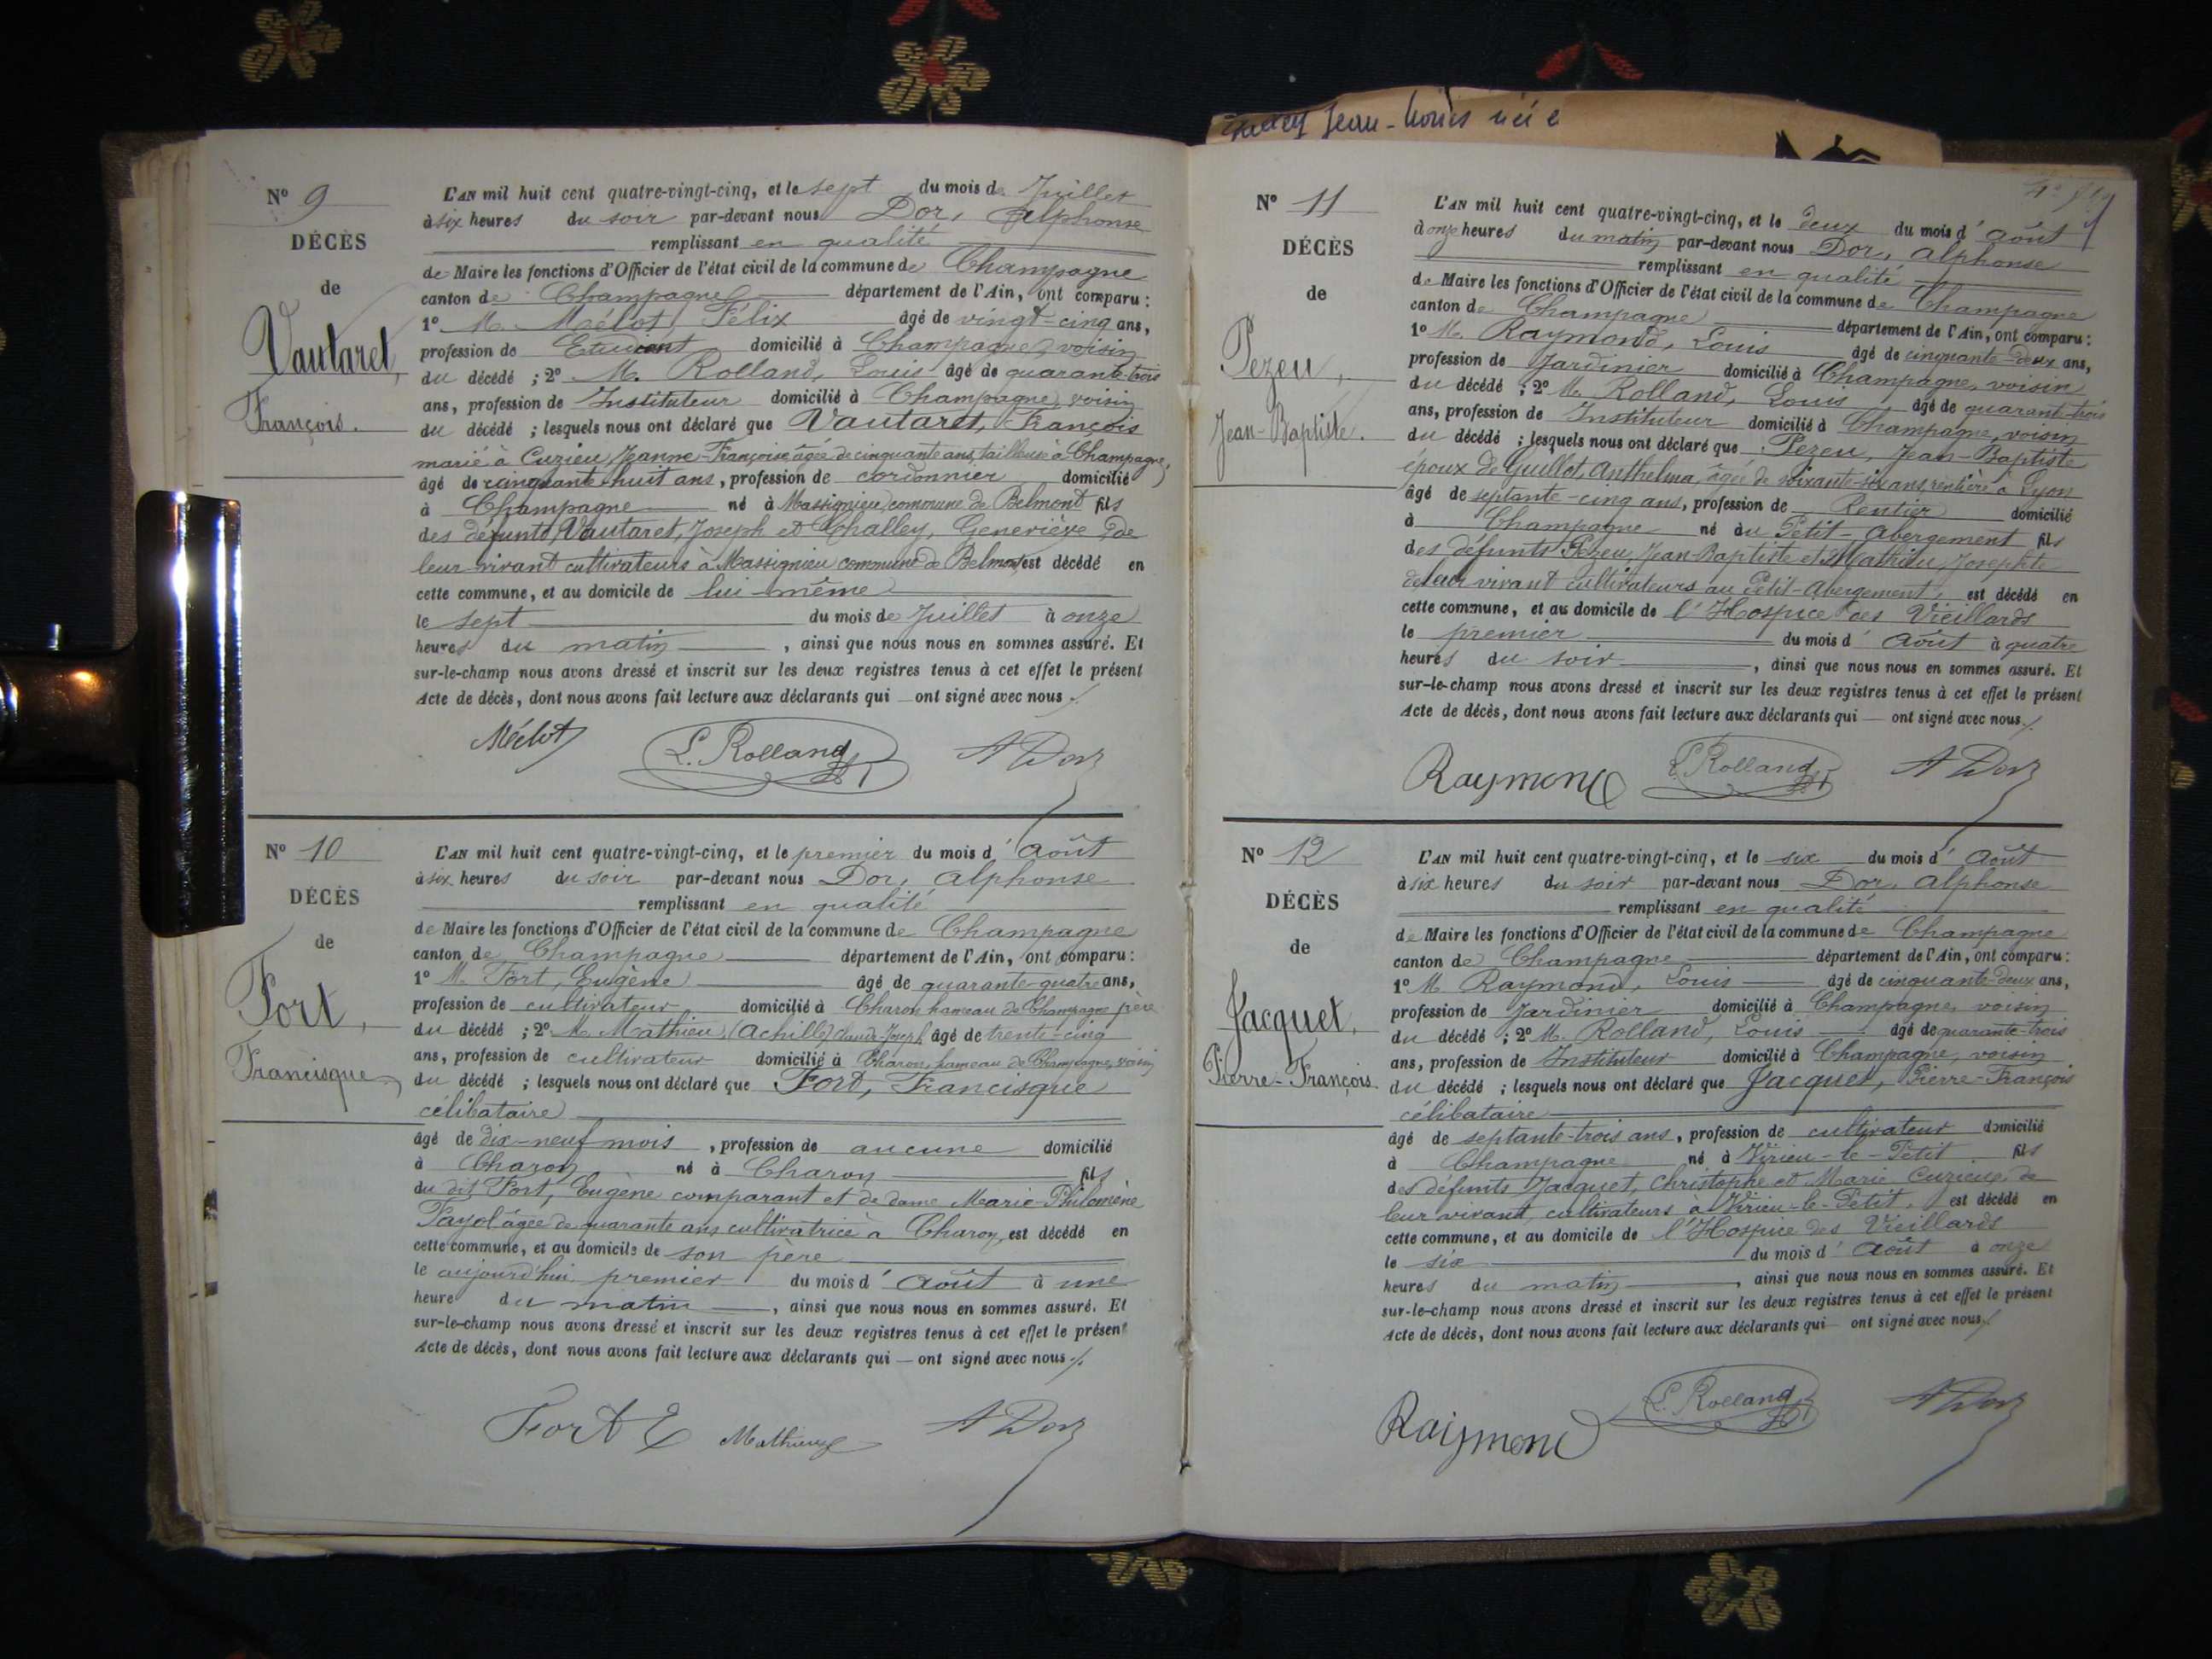 Jean-Louis née
Nº 9
DÉCÈS
de
Vautaret,
François.
L'AN mil huit cent quatre-vingt-cinq, et le sept du mois de Juillet
à six heures du soir par-devant nous Dor, Alphonse
remplissant en qualité
de Maire les fonctions d'Officier de l'état civil de la commune de Champagne
canton de Champagne département de l'Ain, ont comparu :
1º M. Mélot, Félix âgé de vingt-cinq ans,
profession de Etudiant domicilié à Champagne, voisin
du décédé ; 2º M. Rolland, Louis âgé de quarante-trois
ans, profession de Instituteur domicilié à Champagne, voisin
du décédé ; lesquels nous ont déclaré que Vautaret, François
marié à Cuzieu, Jeanne-Françoise âgée de cinquante ans, tailleuse à Champagne,
âgé de cinquante-huit ans, profession de cordonnier domicilié
à Champagne né à Massignieu commune de Belmont fils
des défunts, Vautaret, Joseph et Challey, Geneviève de
leur vivant cultivateurs à Massignieu commune de Belmont est décédé en
cette commune, et au domicile de lui-même
le sept du mois de Juillet à onze
heures du matin, ainsi que nous nous en sommes assuré. Et
sur-le-champ nous avons dressé et inscrit sur les deux registres tenus à cet effet le présent
Acte de décès, dont nous avons fait lecture aux déclarants qui ont signé avec nous.
Mélot L. Rolland A Dor
Nº 10
DÉCÈS
de
Fort,
Francisque
L'AN mil huit cent quatre-vingt-cinq, et le premier du mois d'Août
à six heures du soir par-devant nous Dor, Alphonse
remplissant en qualité
de Maire les fonctions d'Officier de l'état civil de la commune de Champagne
canton de Champagne département de l'Ain, ont comparu :
1º M. Fort, Eugène âgé de quarante-quatre ans,
profession de cultivateur domicilié à Charon hameau de Champagne père
du décédé ; 2º M. Mathieu, (Achille) Claude-Joseph âgé de trente-cinq
ans, profession de cultivateur domicilié à Charon, hameau de Champagne, voisin
du décédé ; lesquels nous ont déclaré que Fort, Francisque
célibataire
âgé de dix-neuf mois, profession de aucune domicilié
à Charon né à Charon fils
du dit Fort, Eugène comparant et de dame Marie-Philomène
Fayol âgée de quarante ans cultivatrice à Charon, est décédé en
cette commune, et au domicile de son père
le aujourd'hui premier du mois d'Août à une
heure du matin, ainsi que nous nous en sommes assuré. Et
sur-le-champ nous avons dressé et inscrit sur les deux registres tenus à cet effet le présent
Acte de décès, dont nous avons fait lecture aux déclarants qui — ont signé avec nous.
Fort E Mathieu A Dor
Nº 11
DÉCÈS
de
Pezeu,
Jean-Baptiste.
L'AN mil huit cent quatre-vingt-cinq, et le deux du mois d'août
à onze heures du matin par-devant nous Dor, Alphonse
remplissant en qualité
de Maire les fonctions d'Officier de l'état civil de la commune de Champagne
canton de Champagne département de l'Ain, ont comparu :
1º M. Raymond, Louis âgé de cinquante-deux ans,
profession de Jardinier domicilié à Champagne, voisin
du décédé ; 2º M. Rolland, Louis âgé de quarante-trois
ans, profession de Instituteur domicilié à Champagne, voisin
du décédé ; lesquels nous ont déclaré que Pezeu, Jean-Baptiste
époux de Guillot, Anthelma, âgée de soixante-six ans, rentière à Lyon
âgé de septante-cinq ans, profession de Rentier domicilié
à Champagne né au Petit-Abergement fils
des défunts Pezeu, Jean-Baptiste et Mathieu, Josephte
de leur vivant cultivateurs au Petit-Abergement, est décédé en
cette commune, et au domicile de l'Hospice des Vieillards
le premier du mois d'Août à quatre
heures du soir, ainsi que nous nous en sommes assuré. Et
sur-le-champ nous avons dressé et inscrit sur les deux registres tenus à cet effet le présent
Acte de décès, dont nous avons fait lecture aux déclarants qui — ont signé avec nous.
Raymond L. Rolland A Dor
Nº 12
DÉCÈS
de
Jacquet,
Pierre-François.
L'AN mil huit cent quatre-vingt-cinq, et le six du mois d'Août
à six heures du soir par-devant nous Dor, Alphonse
remplissant en qualité
de Maire les fonctions d'Officier de l'état civil de la commune de Champagne
canton de Champagne département de l'Ain, ont comparu :
1º M. Raymond, Louis âgé de cinquante-deux ans,
profession de Jardinier domicilié à Champagne, voisin
du décédé ; 2º M. Rolland, Louis âgé de quarante-trois
ans, profession de Instituteur domicilié à Champagne, voisin
du décédé ; lesquels nous ont déclaré que Jacquet, Pierre-François
célibataire
âgé de septante-trois ans, profession de cultivateur domicilié
à Champagne né à Virieu-le-Petit fils
des défunts Jacquet, Christophe et Marie Cuzieu, de
leur vivant, cultivateurs à Virieu-le-Petit, est décédé en
cette commune, et au domicile de l'Hospice des Vieillards
le six du mois d'Août à onze
heures du matin, ainsi que nous nous en sommes assuré. Et
sur-le-champ nous avons dressé et inscrit sur les deux registres tenus à cet effet le présent
Acte de décès, dont nous avons fait lecture aux déclarants qui — ont signé avec nous.
Raijmond L. Rolland A Dor